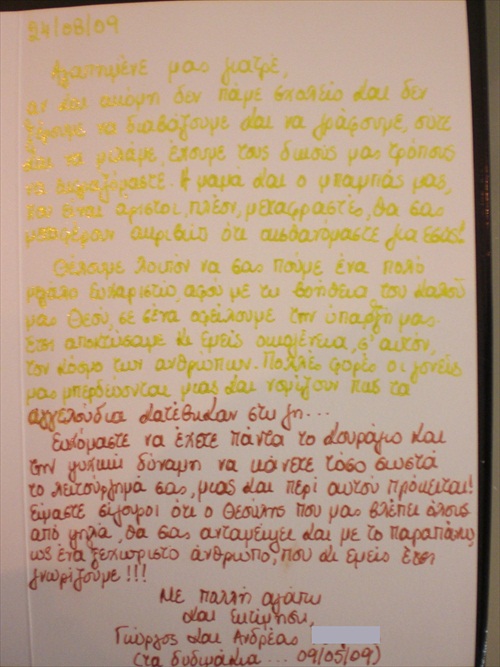 24/08/09
Αγαπημένε μας γιατρέ,
αν και ακόμη δεν πάμε σχολείο και δεν
ξέρουμε να διαβάζουμε και να γράφουμε, ούτε
και να μιλάμε, έχουμε τους δικούς μας τρόπους
να εκφραζόμαστε. Η μαμά και ο μπαμπάς μας,
που είναι άριστοι, πλέον, μεταφραστές, θα σας
μεταφέρουν ακριβώς ότι αισθανόμαστε για εσάς!
Θέλουμε λοιπόν να σας πούμε ένα πολύ
μεγάλο ευχαριστώ, αφού με τη βοήθεια του καλού
μας Θεού, σε σένα οφείλουμε την ύπαρξή μας.
Έτσι αποκτήσαμε κι εμείς οικογένεια, σ' αυτόν,
τον κόσμο των ανθρώπων. Πολλές φορές οι γονείς
μας μπερδεύονται μιας και νομίζουν πως τα
αγγελούδια κατέβηκαν στη γη...
Ευχόμαστε να έχετε πάντα το κουράγιο και
την ψυχική δύναμη να κάνετε τόσο σωστά
το λειτούργημά σας, μιας και περί αυτού πρόκειται!
Είμαστε σίγουροι ότι ο Θεούλης που μας βλέπει όλους
από ψηλά, θα σας ανταμείψει και με το παραπάνω
ως ένα ξεχωριστό άνθρωπο, που κι εμείς έτσι
γνωρίζουμε!!!
Με πολλή αγάπη
και εκτίμηση,
Γιώργος και Ανδρέας
(τα διδυμάκια... 09/05/09)